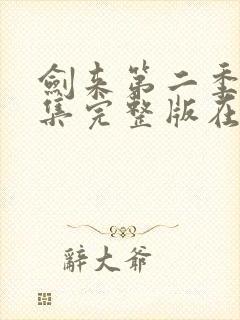 劍来第二季
集完整版在
辭大爷